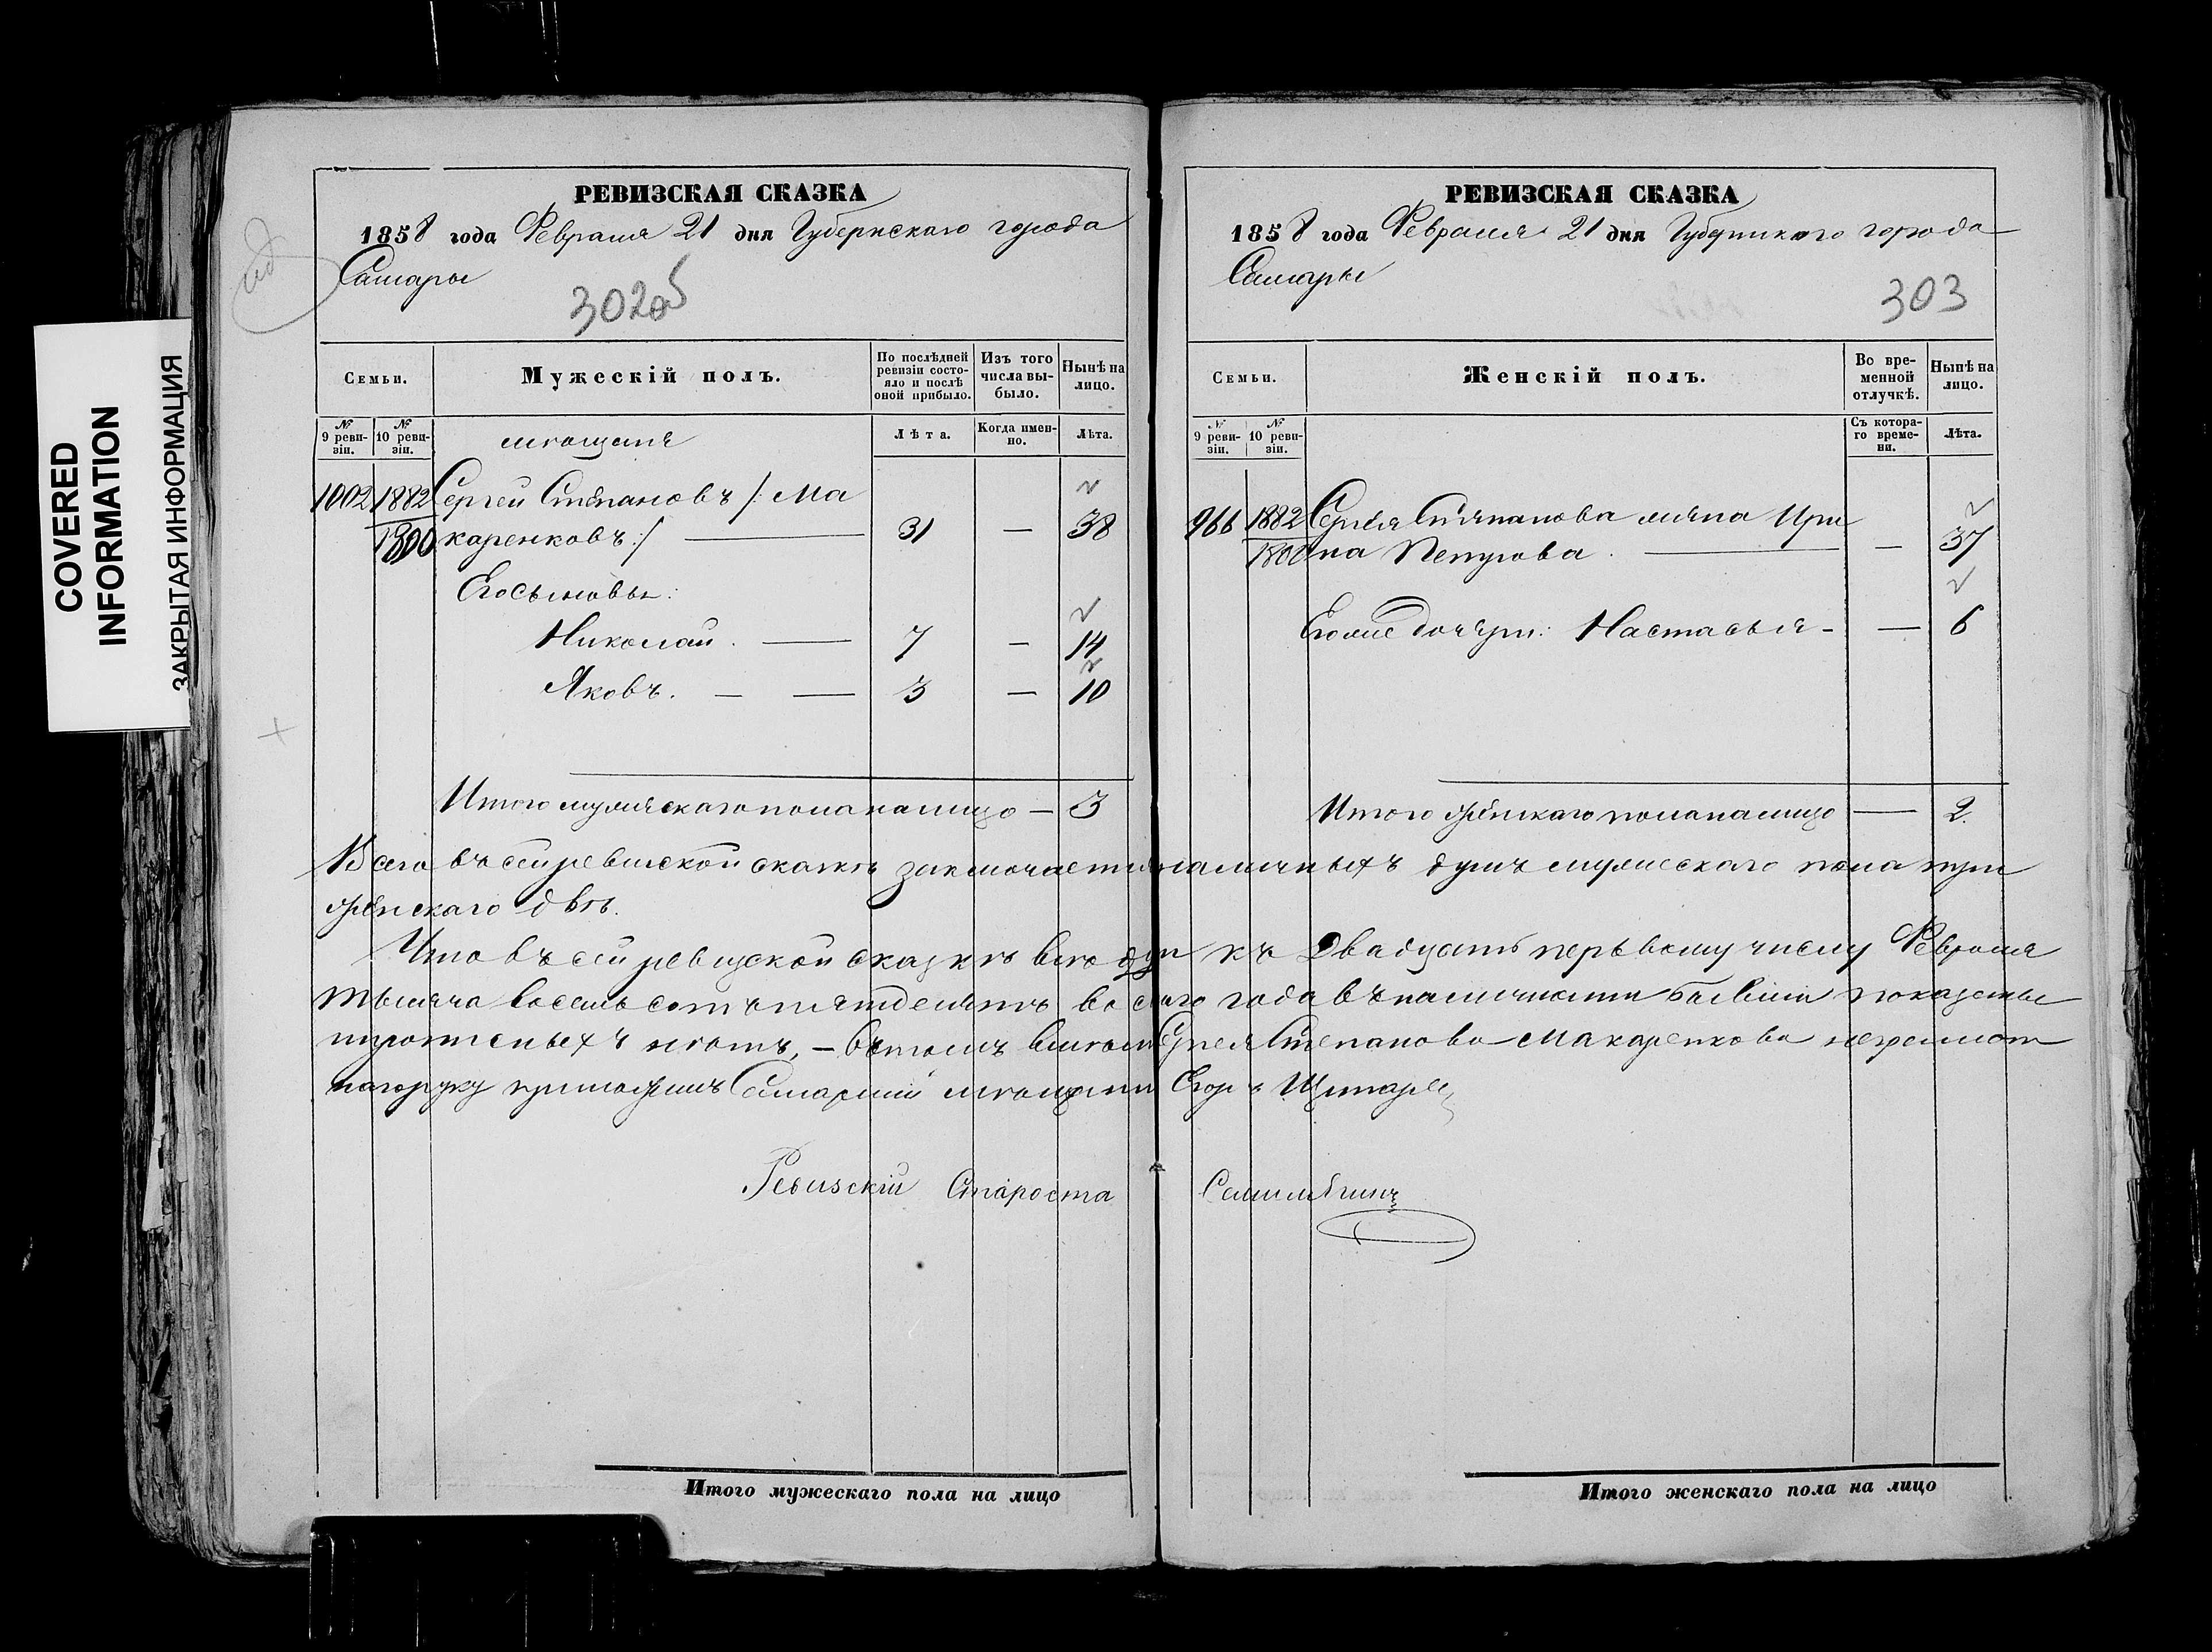 COVERED
INFORMATION
ЗАКРЫТАЯ ИНФОРМАЦИЯ
РЕВИЗСКАЯ СКАЗКА
1858 года Февраля 21 дня Губернского города
Самары
302об
Семьи.
Мужескій полъ.
По послѣдней ревизіи состояло и послѣ оной прибыло.
Изъ того числа выбыло.
Нынѣ на лицо.
№ 9 ревизіи.
№ 10 ревизіи.
мѣщане
Лѣта.
Когда именно.
Лѣта.
1002 1882 Сергей Степановъ /: Ма
1800 каренковъ :/ — 31 — 38
Его сыновья:
Николай. — 7 — 14
Яковъ. — — 3 — 10
Итого мужескаго пола налицо — 3
РЕВИЗСКАЯ СКАЗКА
1858 года Февраля 21 дня Губернскаго города
Самары
303
Семьи.
Женскій полъ.
Во временной отлучкѣ.
Нынѣ на лицо.
№ 9 ревизіи.
№ 10 ревизіи.
Съ котораго времени.
Лѣта.
966 1882 Сергея Степанова жена Ири
1800 на Петрова. — — 37
Его же дочери: Настасья — — 6
Итого женскаго пола налицо — 2.
Всего въ сей ревизской сказкѣ заключается наличныхъ душъ мужескаго пола три
женскаго двѣ.
Что въ сей ревизской сказкѣ всѣ души къ двадцать первому числу Февраля
тысяча восемьсотъ пятдесятъ восмаго года въ наличности бывшіи показаны
и прописныхъ нѣтъ, — въ томъ вмѣсто Сергея Степанова Макаренкова неграмот
наго руку приложилъ Самарскій мѣщанин Егоръ
Ревизскій Староста
Итого мужескаго пола на лицо
Итого женскаго пола на лицо